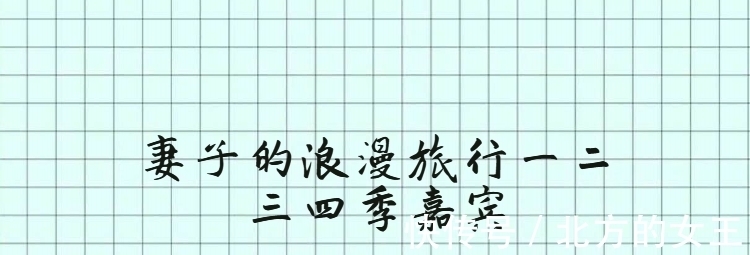 妻子的浪漫旅行一二
三四季嘉宾
快传号/北方的女王